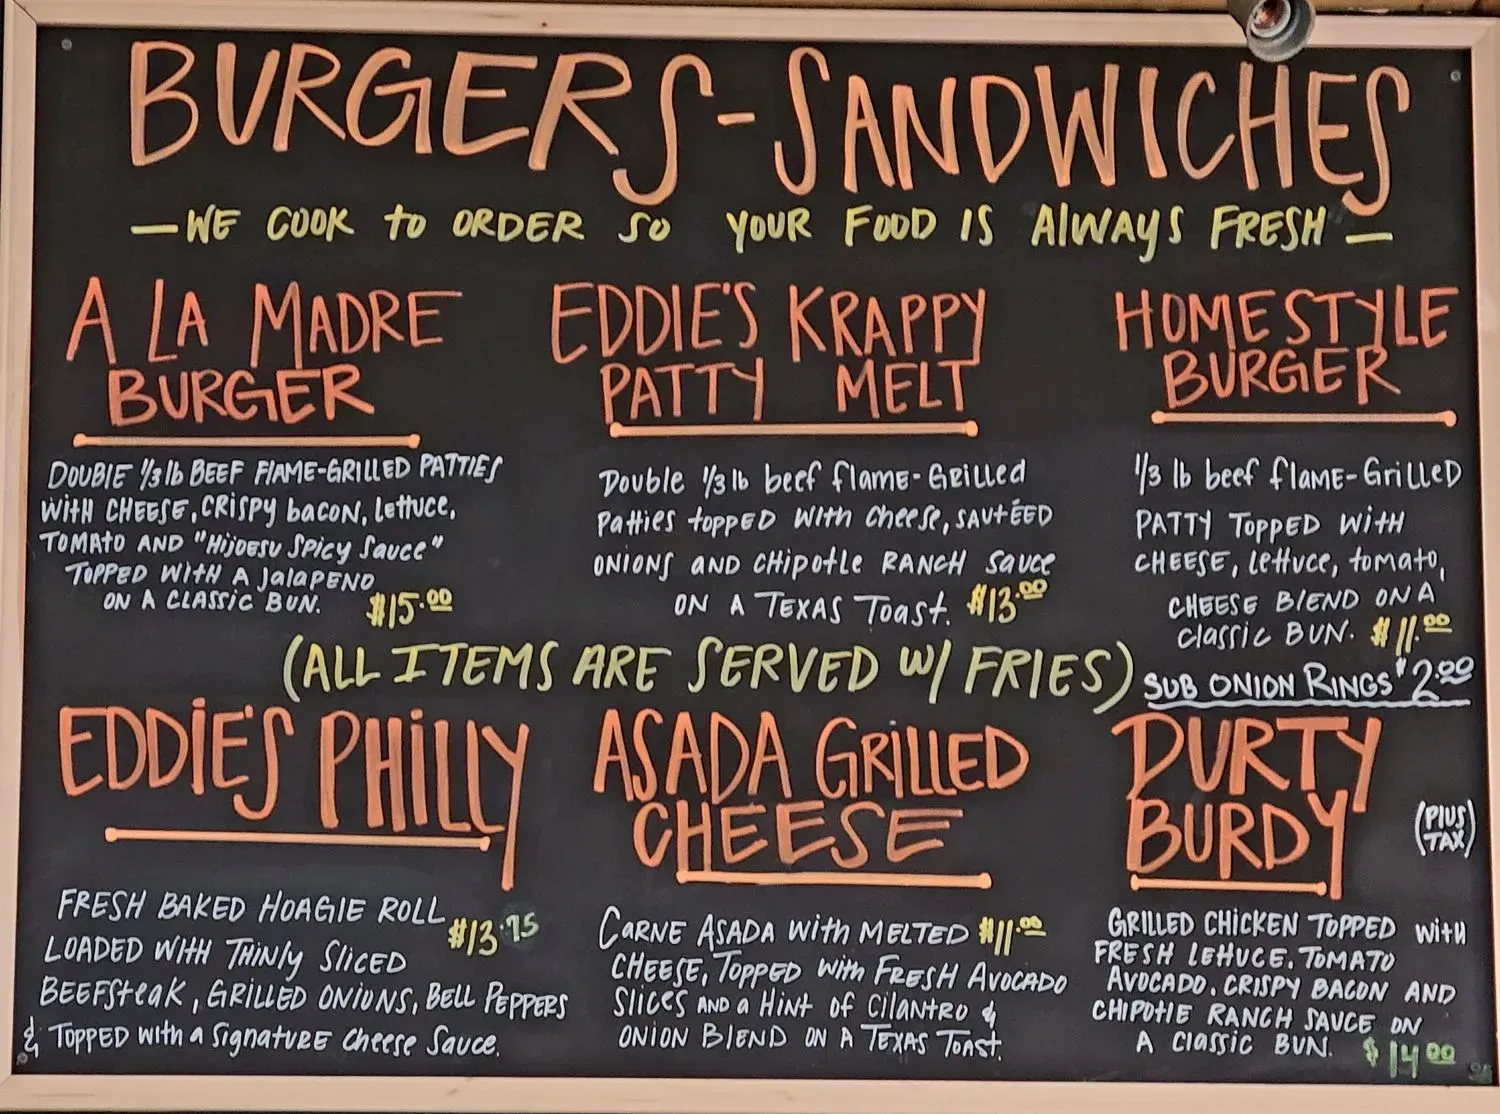 BURGERS-SANDWICHES
— WE COOK to ORDER SO YOUR FOOD IS AlWAyS FRESH —
A LA MADRE
BURGER
DOUBLE 1/3 lb BEEF FlAME-GRILLED PATTIES
WITH CHEESE, CRISPY bACON, lettuce,
TOMATO AND "HijOESU SPICY SAUCE"
TOPPED WITH A JAlAPENO
ON A CLASSIC BUN. $15.00
EDDIE'S KRAPPY
PATTY MELT
Double 1/3 lb beef flame-Grilled
Patties topped with cheese, SAUTÉED
ONIONS AND CHipotle RANCH Sauce
ON A TEXAS TOAST. $13.00
HOMESTYLE
BURGER
1/3 lb beef flAME-GrilleD
PATTY TOPPED WITH
CHEESE, lettuce, tomato,
CHEESE BlEND ON A
ClaSSIC BUN. $11.00
SUB ONION RINGS $2.00
(ALL ITEMS ARE SERVED W/ FRIES)
EDDIE'S PHILLY
FRESH BAKED HOAGIE ROLL
$13.75
LOADED WITH THINly SliCED
BEEFSteaK, GRILLED ONIONS, BELL PEPPERS
& TOPPED with a SIGNATURE CHEESE SAUCE.
ASADA GRILLED
CHEESE
CARNE ASADA with MELTED $11.00
CHEESE, TOPPED with FRESH AVOCADO
SliCES AND a HINT of CilANTRO &
ONION BlEND ON A TEXAS TOAST.
DURTY
BURDY
(PlUS
TAX)
GRILLED CHICKEN TOPPED with
FRESH LETTUCE. TOMATO
AVOCADO. CRISPY BACON AND
CHIPOTlE RANCH SAUCE ON
A ClaSSIC BUN. $14.00